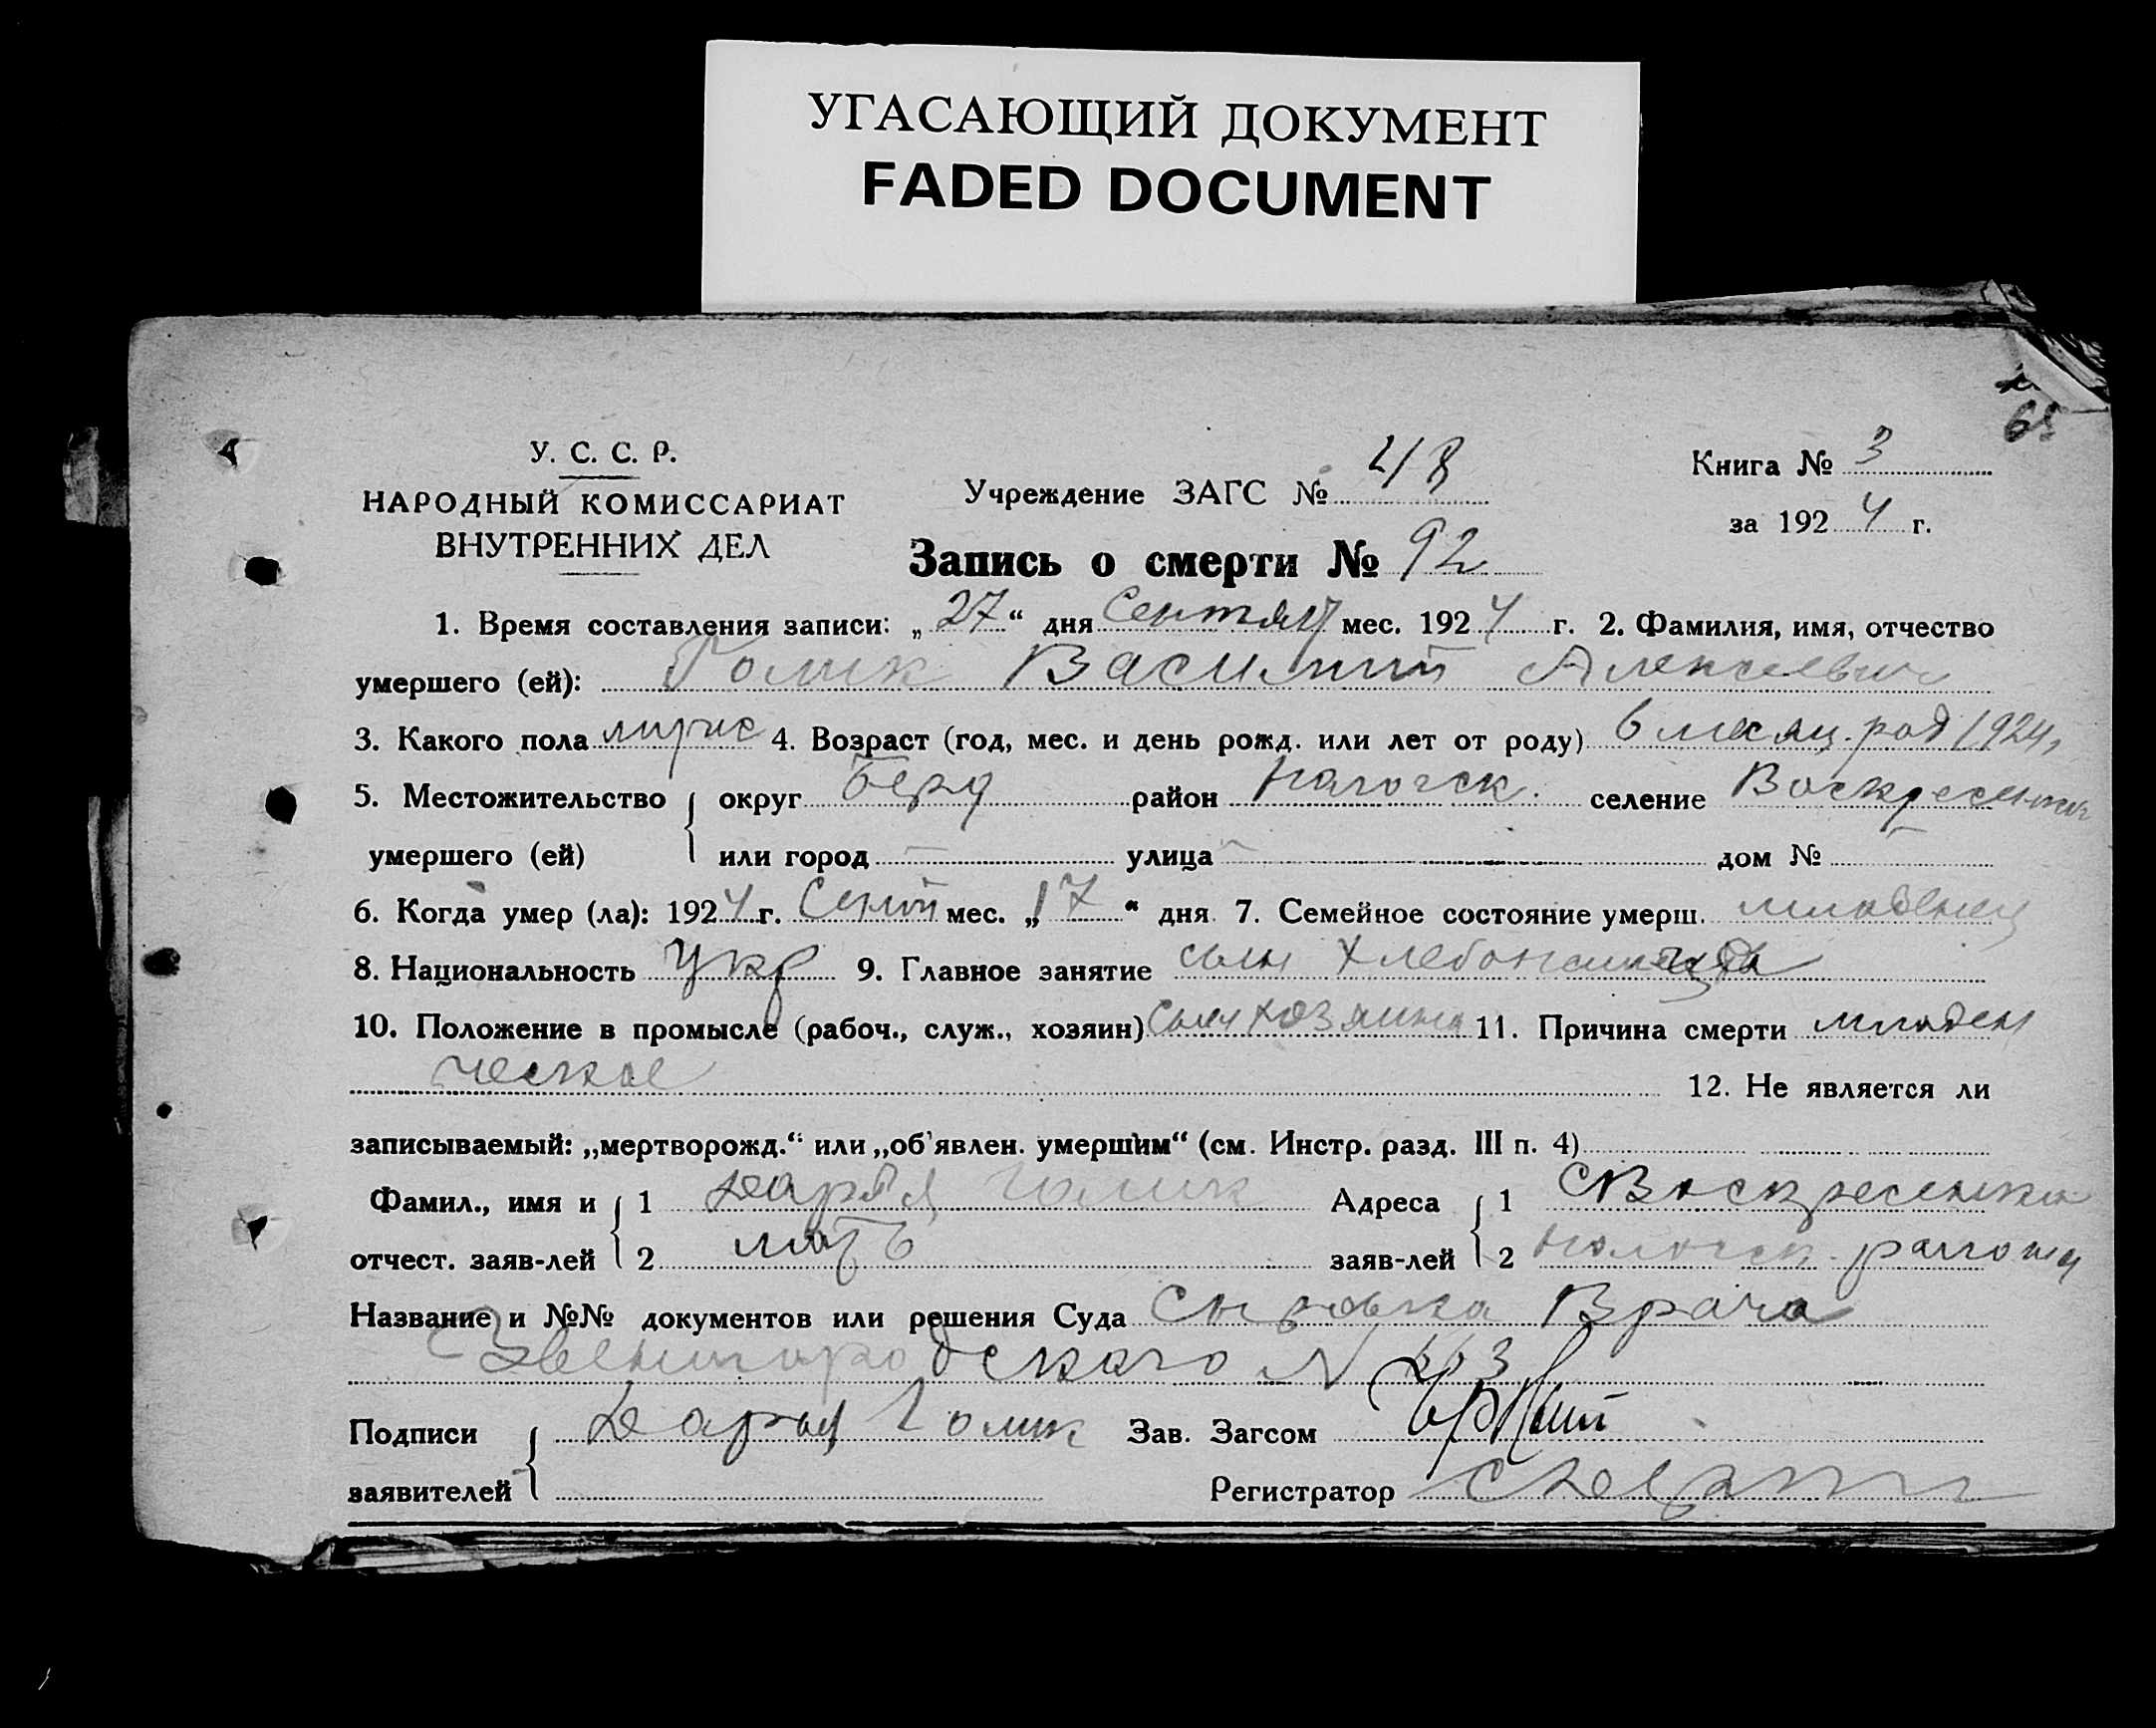 УГАСАЮЩИЙ ДОКУМЕНТ
FADED DOCUMENT
У. С. С. Р.
НАРОДНЫЙ КОМИССАРИАТ
ВНУТРЕННИХ ДЕЛ
Учреждение ЗАГС № 48
Книга № 3
за 1924 г.
Запись о смерти № 92
1. Время составления записи: „27“ дня Сентяб мес. 1924 г. 2. Фамилия, имя, отчество
умершего (ей): Голик Василий Алексеевич
3. Какого пола мужс 4. Возраст (год, мес. и день рожд. или лет от роду) 6 месяц. род 1924
5. Местожительство умершего (ей) округ Берд район селение Воскресенка
или город — улица — дом № —
6. Когда умер (ла): 1924 г. мес. „17“ дня 7. Семейное состояние умерш. младенец
8. Национальность Укр 9. Главное занятие сын Хлебопашца
10. Положение в промысле (рабоч., служ., хозяин) сын хозяина 11. Причина смерти младен
ческое 12. Не является ли
записываемый: „мертворожд.“ или „об'явлен. умершим“ (см. Инстр. разд. III п. 4)
Фамил., имя и отчест. заяв-лей 1 Дарья Голик Адреса заяв-лей 1 С Воскресенка
2 мать 2 района
Название и №№ документов или решения Суда Врача
Звенигородского N
Подписи заявителей Дарья Голик Зав. Загсом
Регистратор